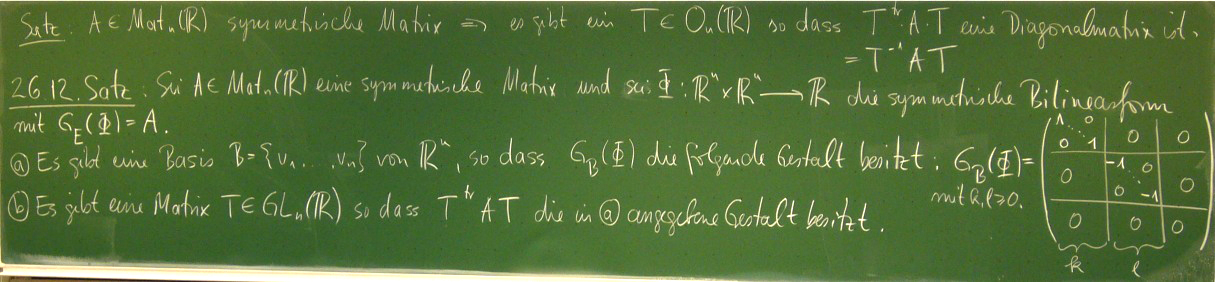 Satz: A ∈ Mat_n(ℝ) symmetrische Matrix ⇒ es gibt ein T ∈ O_n(ℝ) so dass T^tr·A·T eine Diagonalmatrix ist.
= T^-1 A T
26.12. Satz: Sei A ∈ Mat_n(ℝ) eine symmetrische Matrix und sei Φ: ℝ^n × ℝ^n → ℝ die symmetrische Bilinearform
mit G_E(Φ) = A.
ⓐ Es gibt eine Basis B = {v_1, ..., v_n} von ℝ^n, so dass G_B(Φ) die folgende Gestalt besitzt: G_B(Φ) =
1 0 0 0
0 1
0 -1 0 0
0 -1
0 0 0
k l
mit k, l ≥ 0.
ⓑ Es gibt eine Matrix T ∈ GL_n(ℝ) so dass T^tr A T die in ⓐ angegebene Gestalt besitzt.